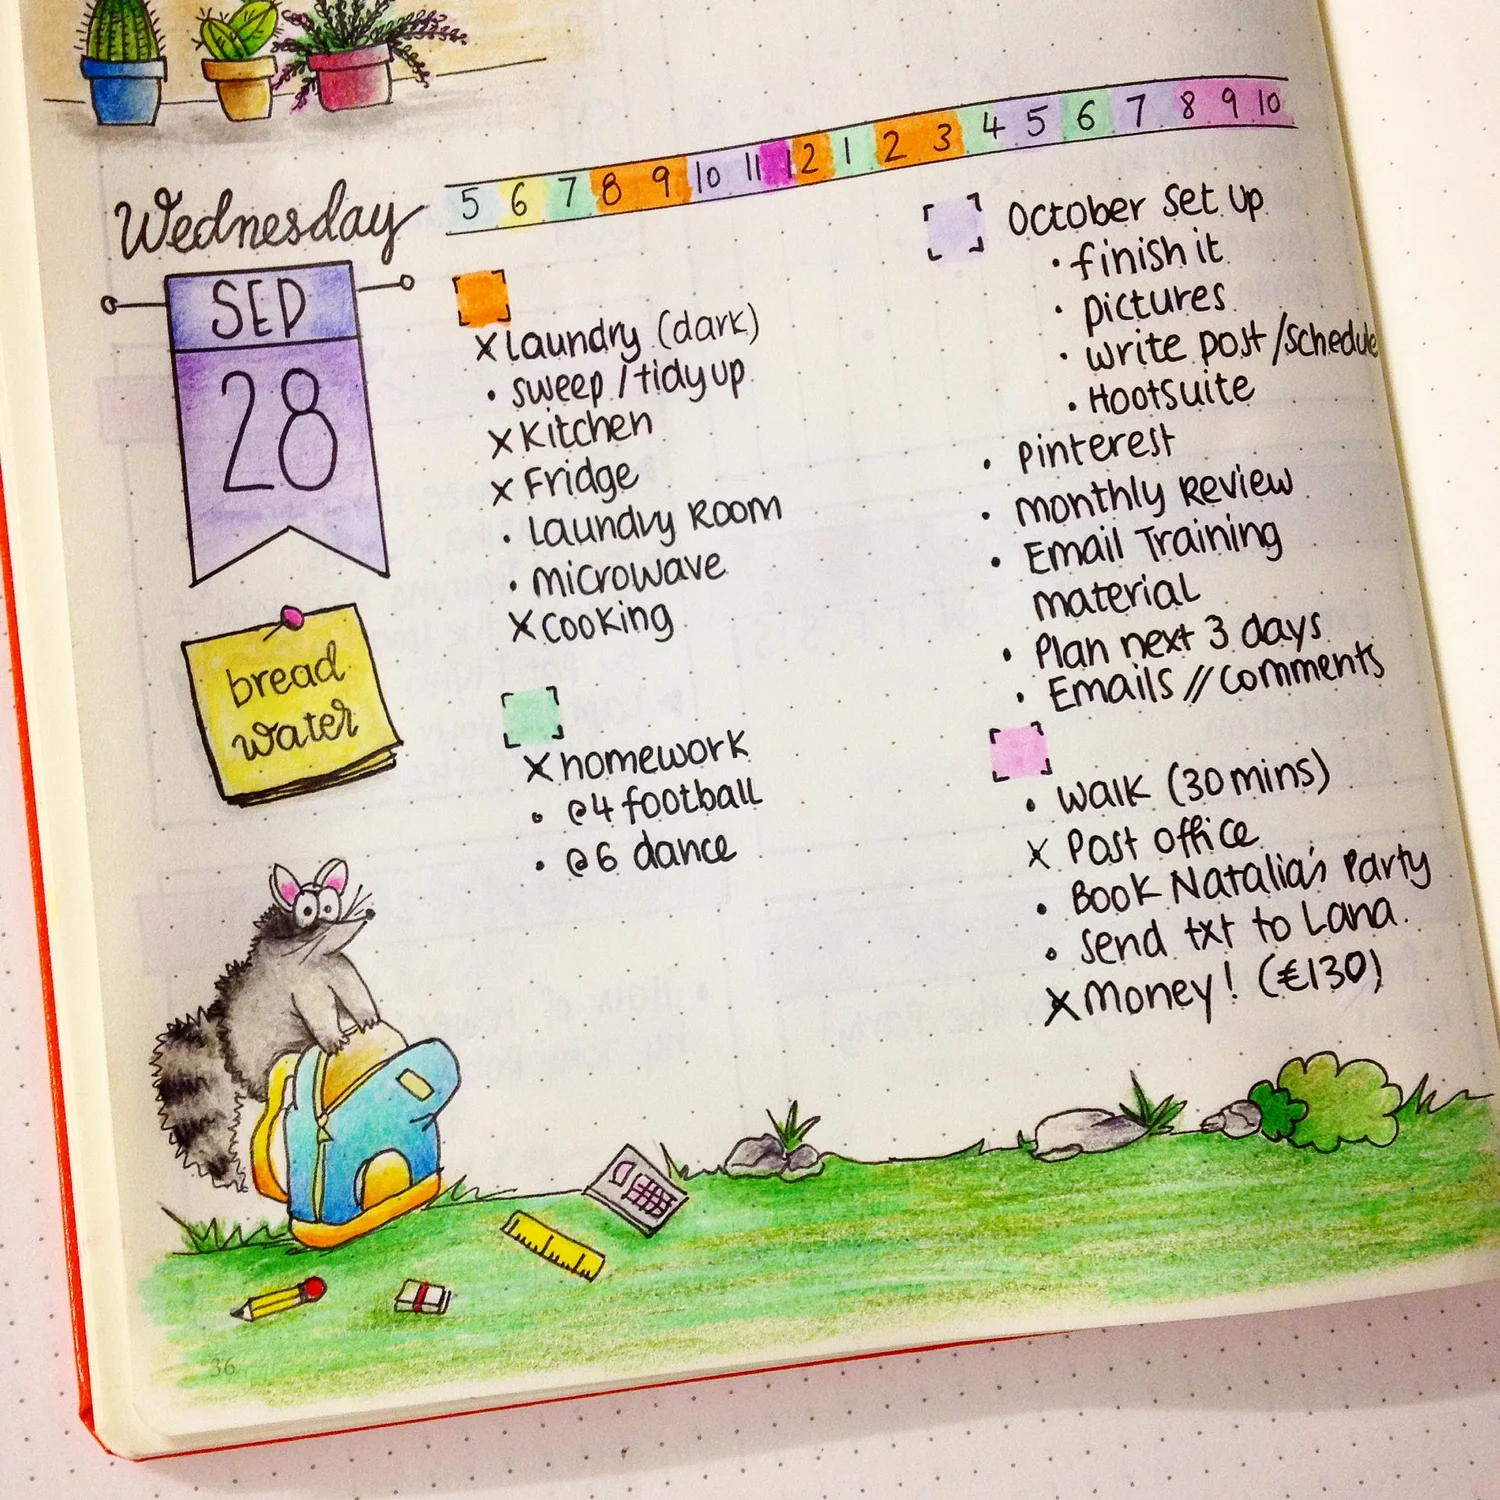 5 6 7 8 9 10 11 12 1 2 3 4 5 6 7 8 9 10
Wednesday
SEP
28
bread
water
x Laundry (dark)
• sweep / tidy up
x Kitchen
x Fridge
• Laundry Room
• microwave
x cooking
x homework
• @4 football
• @6 dance
October set up
• finish it
• pictures
• write post / schedule
• Hootsuite
• Pinterest
• monthly Review
• Email Training
material
• Plan next 3 days
• Emails // comments
• walk (30 mins)
x Post office
• Book Natalia's Party
• send txt to Lana.
x money! (€130)
36